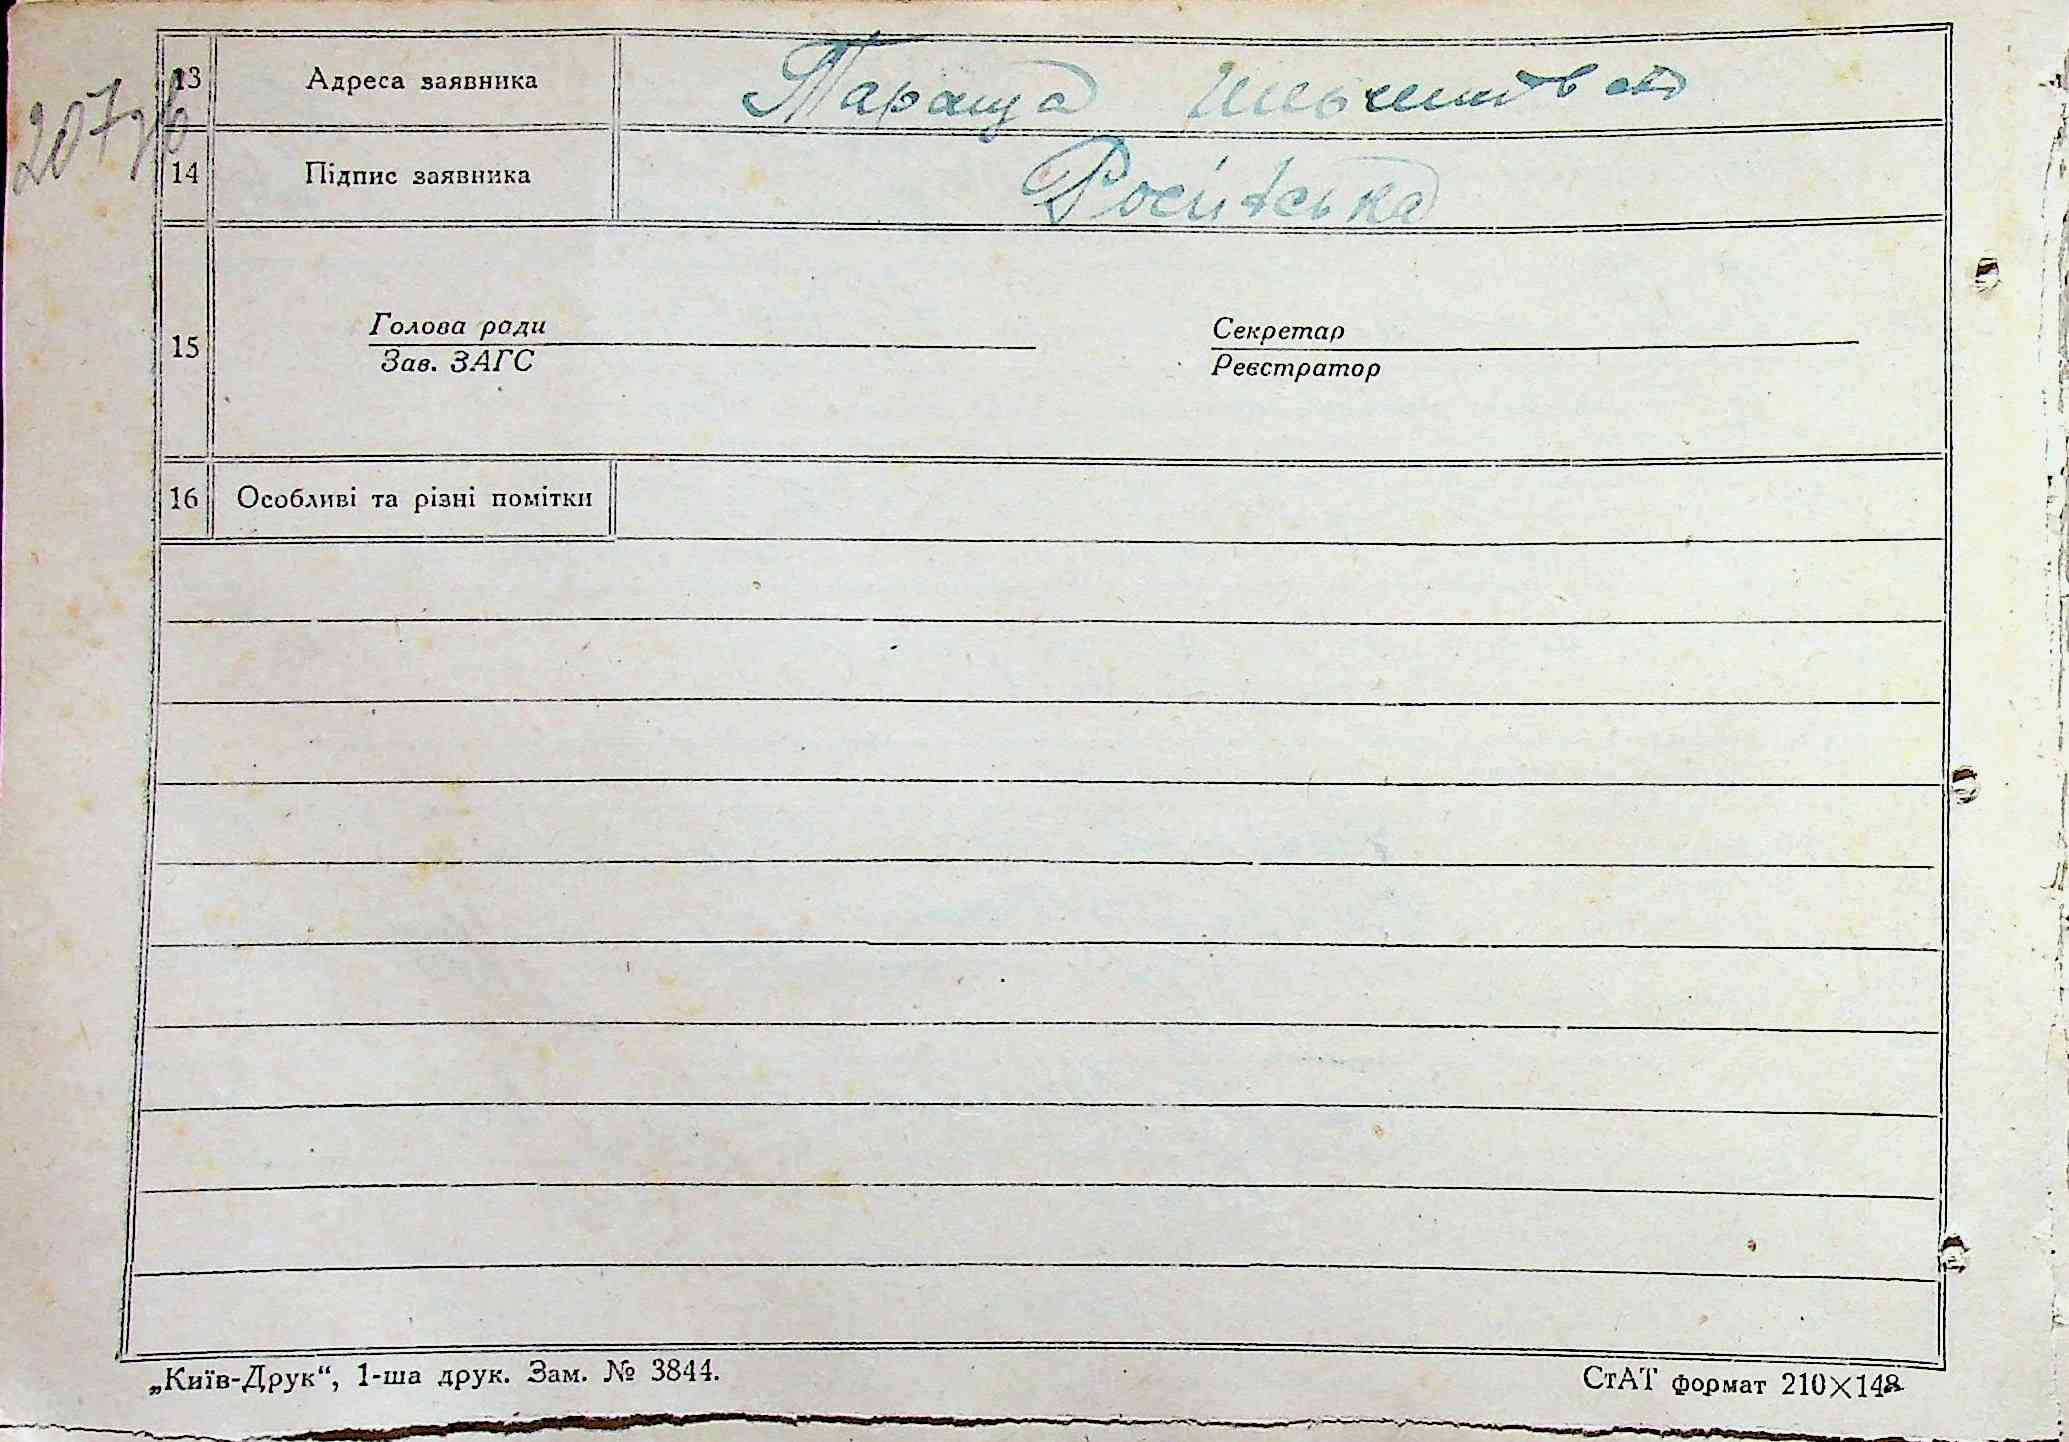 13 Адреса заявника Тараща
14 Підпис заявника Росінська
15 Голова ради Секретар
Зав. ЗАГС Реєстратор
16 Особливі та різні помітки
„Київ-Друк“, 1-ша друк. Зам. № 3844. СтАТ формат 210×148